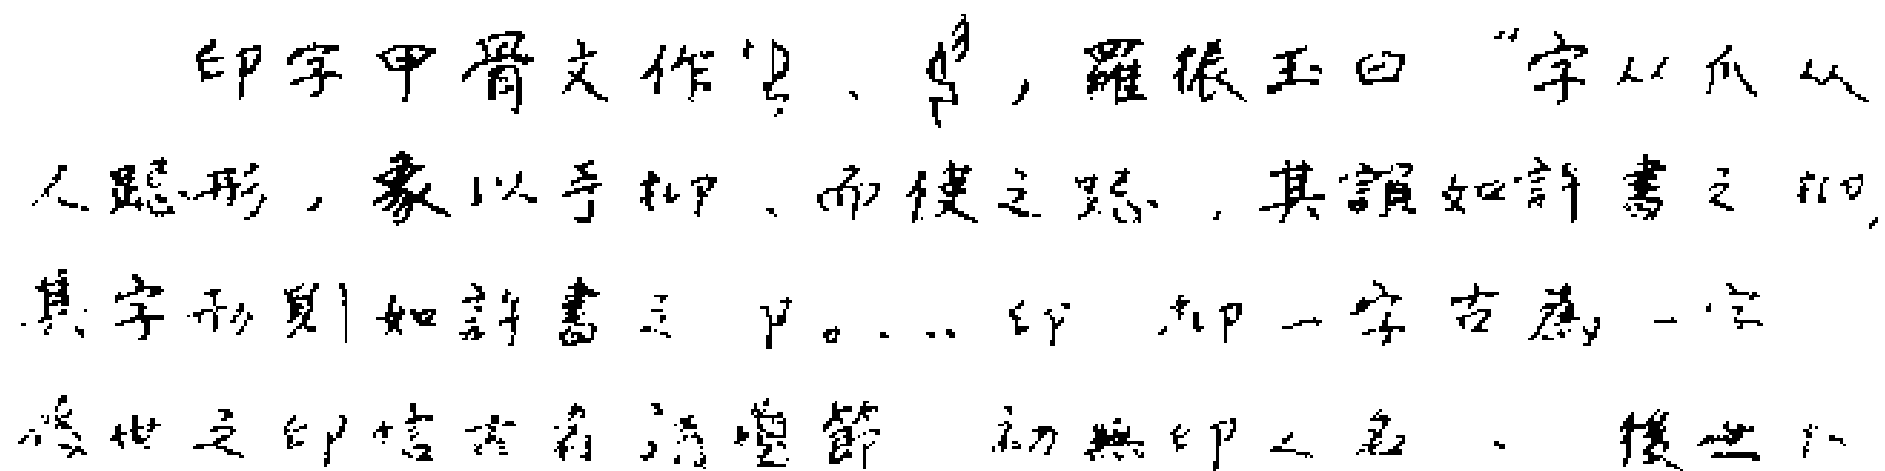 印字甲骨文作、，羅振玉曰“字从爪从
人跽形，象以手抑、而使之跽．其誼如許書之抑，
其字形則如許書之印。...印抑一字古為一字
後世之印信古者謂璽節 初無印之名、後世以